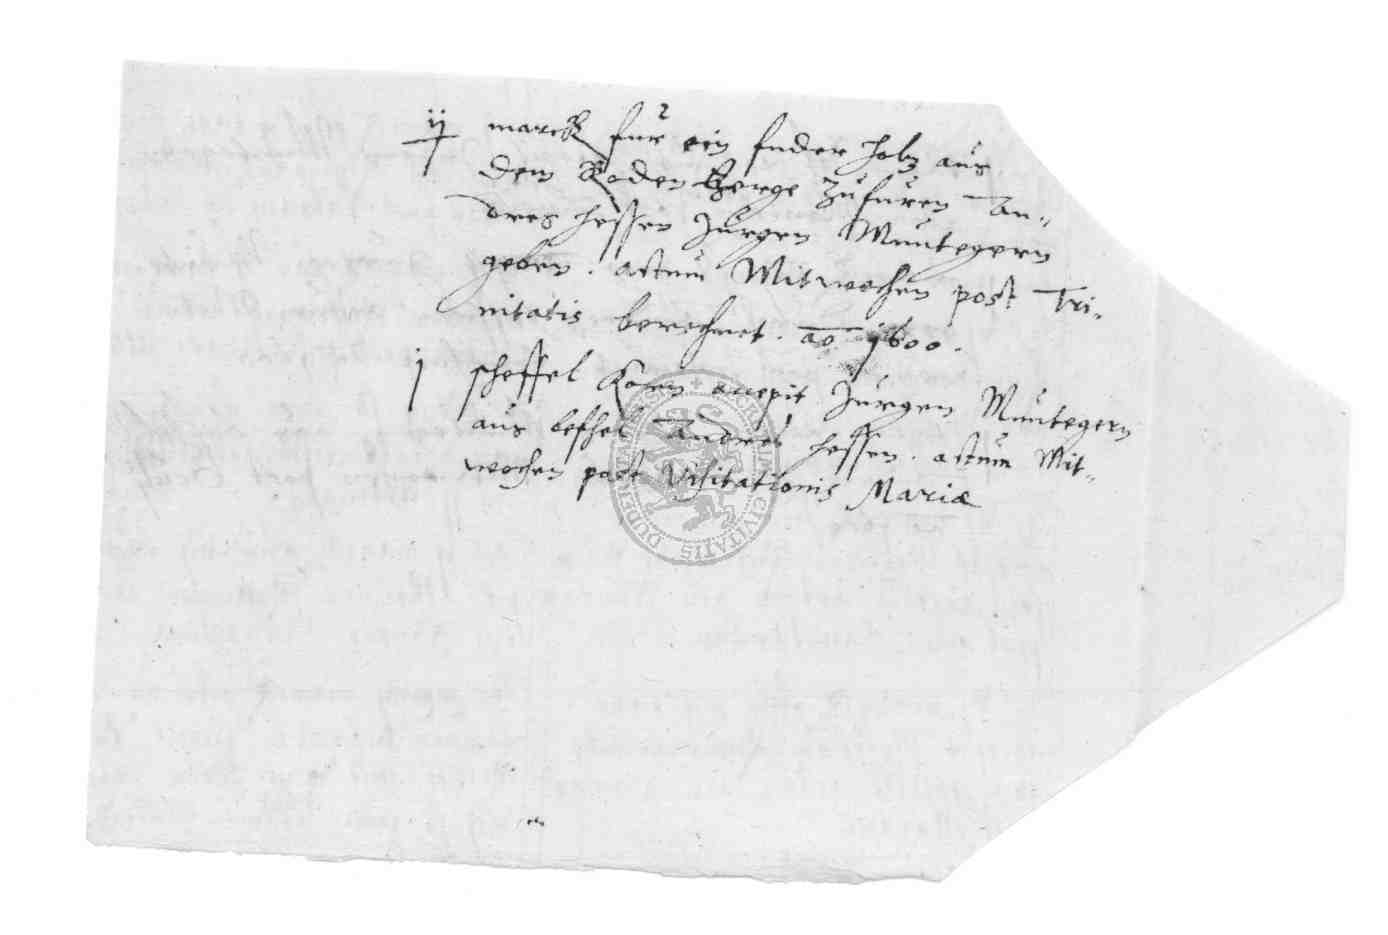 ij marck für ein fuder holtz aus
dem Roden Berge zufüren An-
dres hessen Jurgen Muntegern
geben. actum Mitwochen post Tri-
nitatis berechnet. ao 1600.
j scheffel Korn accepit Jurgen Muntegern
aus befhel Andres hessen. actum Mit-
wochen post Visitationis Mariæ
CIVITATIS